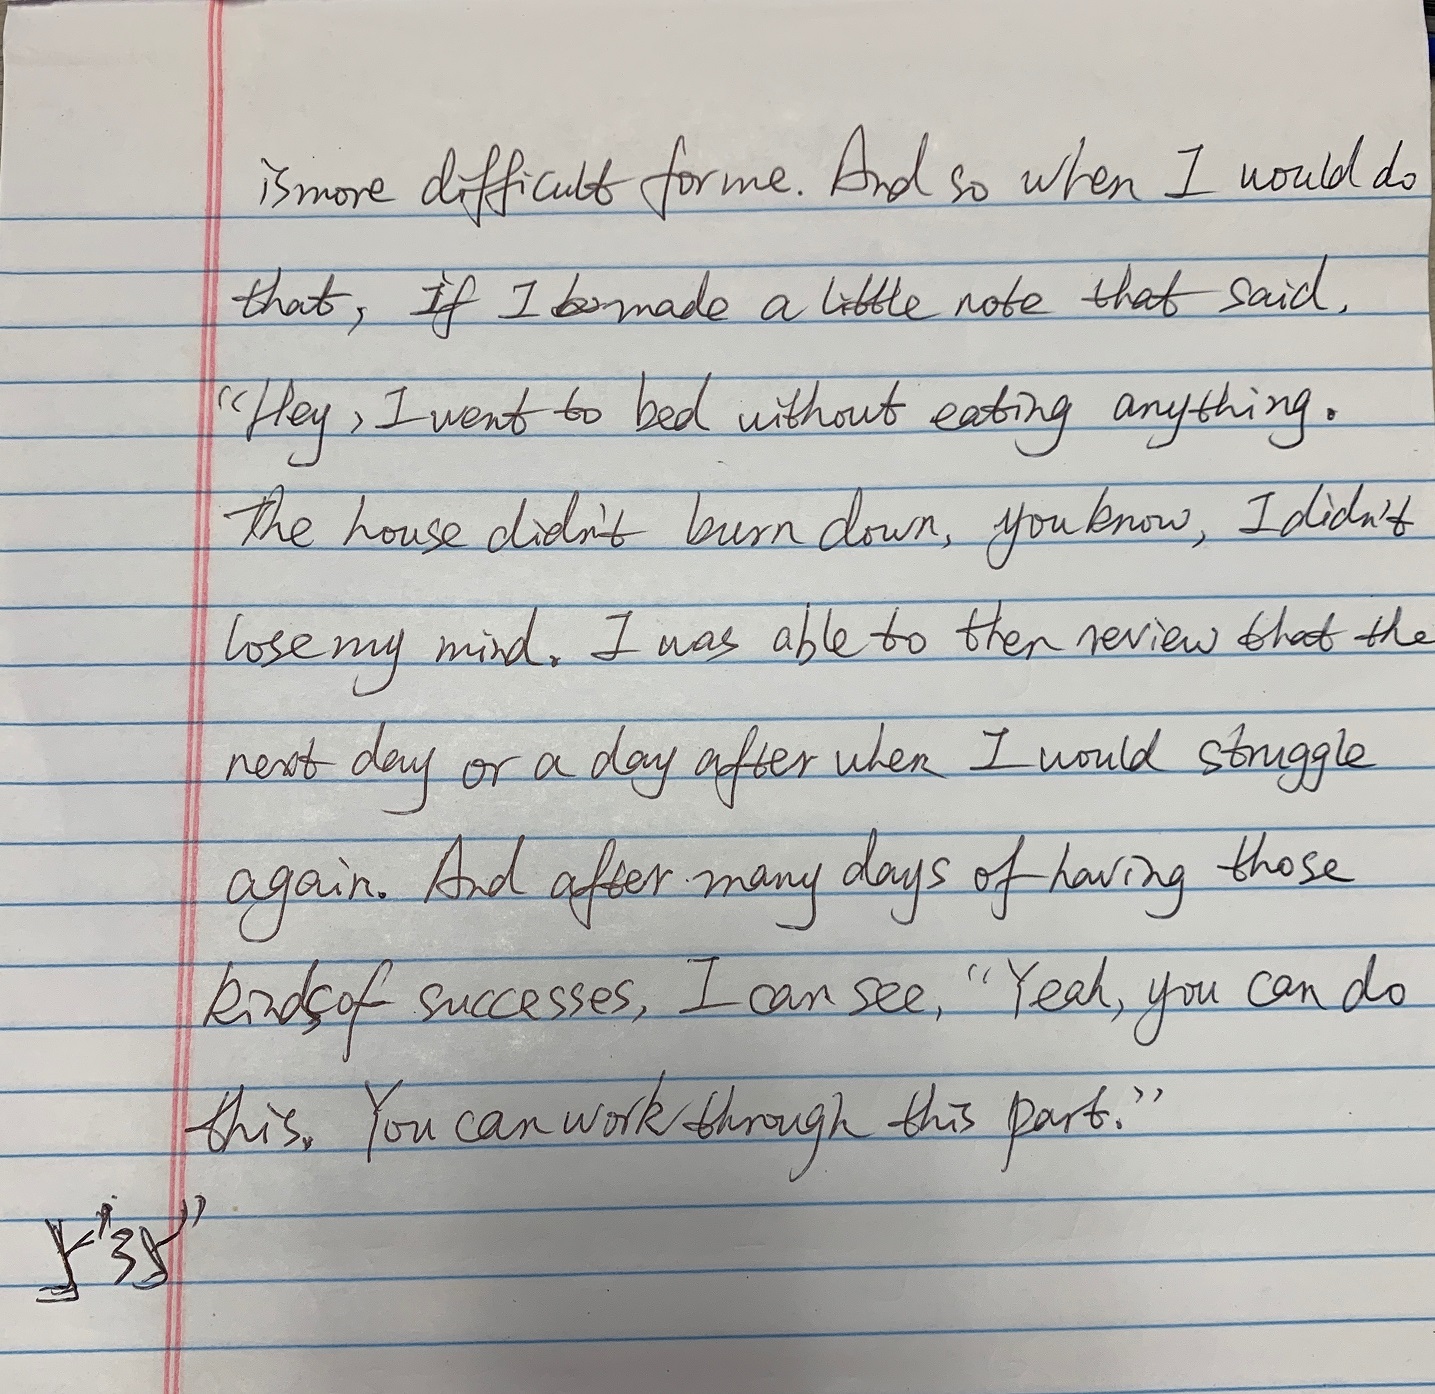 is more difficult for me. And so when I would do
that, If I made a little note that said,
"Hey, I went to bed without eating anything.
The house didn't burn down, you know, I didn't
lose my mind. I was able to then review that the
next day or a day after when I would struggle
again. And after many days of having those
kinds of successes, I can see, "Yeah, you can do
this. You can work through this part."